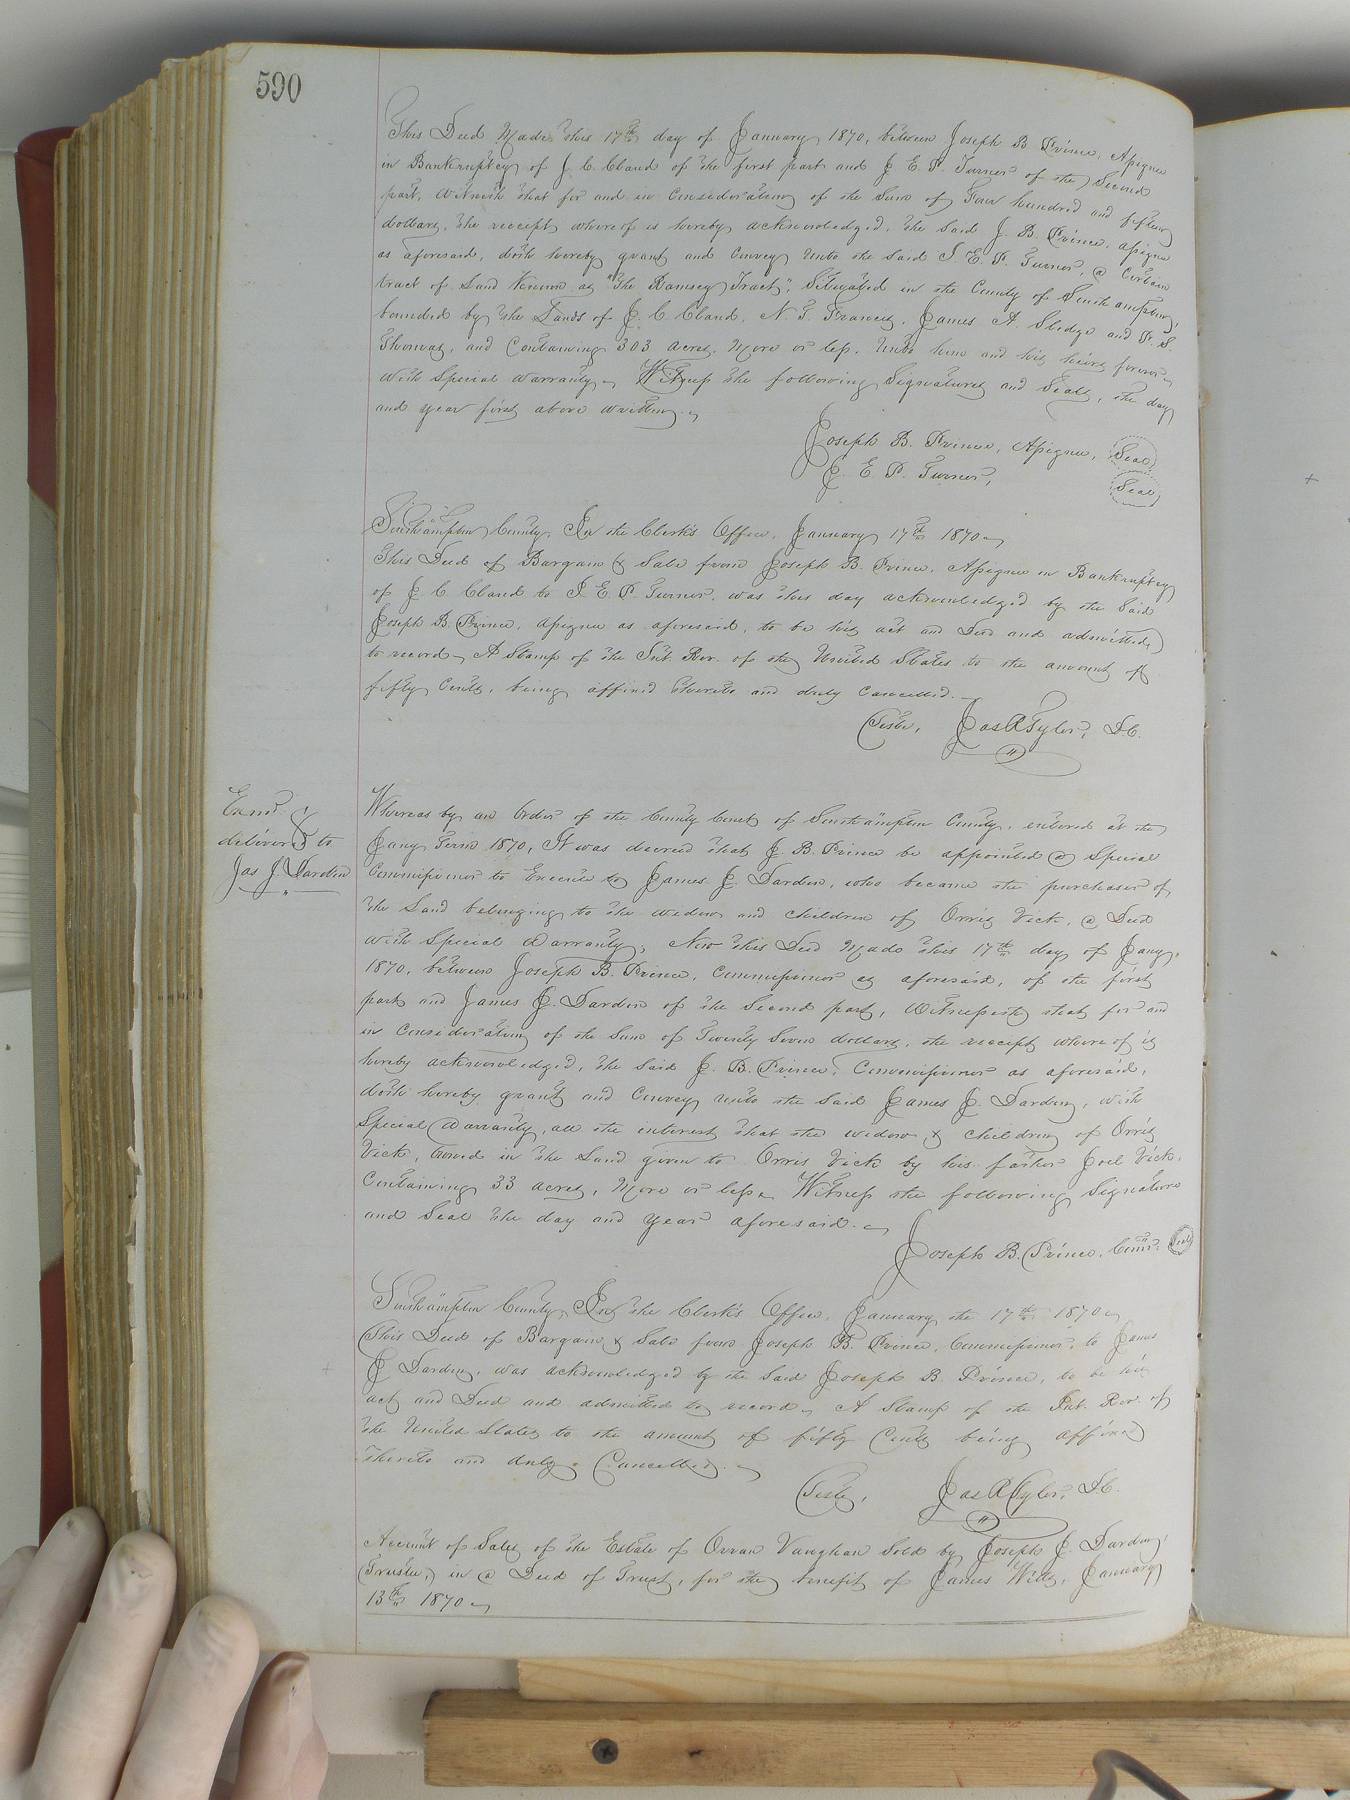 590
This Deed Made this 17th day of January 1870, between Joseph B Prince, Assignee
in Bankruptcy of J. C. Cland of the first part and J E. P. Turner of the Second
part, Witnesseth that for and in Consideration of the Sum of Four hundred and fifteen
dollars, the receipt whereof is hereby acknowledged, the Said J. B. Prince, assignee
as aforesaid, doth hereby grant and Convey unto the Said J. E. P. Turner, a Certain
tract of Land Known as "The Ramsey Tract", Situated in the County of Southampton,
bounded by the Lands of J. C. Cland, N. T. Francis, James A. Sledge and
Thomas, and Containing 303 acres, More or less, Unto him and his heirs forever
with Special Warranty. Witness the following Signatures and Seals, the day
and year first above written.
Joseph B. Prince, Assignee, Seal
J. E. P. Turner, Seal
Southampton County, In the Clerk's Office, January 17th 1870
This Deed of Bargain & Sale from Joseph B. Prince, Assignee in Bankruptcy
of J. C. Cland to J. E. P. Turner, was this day acknowledged by the Said
Joseph B. Prince, assignee as aforesaid, to be his act and Deed and admitted
to record. A Stamp of the Int. Rev. of the United States to the amount of
fifty Cents, being affixed thereto and duly Cancelled.
Teste, Jas R Tyler, D.C.
Exmd &
delivered to
Jas J. Darden
Whereas by an Order of the County Court of Southampton County, entered at the
Jany Term 1870, It was decreed that J. B. Prince be appointed a Special
Commissioner to Execute to James J. Darden, who became the purchaser of
the Land belonging to the widow and children of Orris Vick, a Deed
with Special Warranty, Now this Deed Made this 17th day of Jany.
1870, between Joseph B. Prince, Commissioner as aforesaid, of the first
part and James J. Darden of the Second part, Witnesseth that for and
in Consideration of the Sum of Twenty Seven dollars, the receipt whereof is
hereby acknowledged, the Said J. B. Prince, Commissioner as aforesaid,
doth hereby grant and Convey unto the Said James J. Darden, with
Special Warranty, all the interest that the widow & children of Orris
Vick, owned in the Land given to Orris Vick by his father Joel Vick,
Containing 33 acres, More or less, Witness the following Signature
and Seal the day and year aforesaid.
Joseph B. Prince, Comr. Seal
Southampton County, In the Clerk's Office, January the 17th 1870
This Deed of Bargain & Sale from Joseph B. Prince, Commissioner, to James
J Darden, was acknowledged by the Said Joseph B. Prince, to be his
act and Deed and admitted to record. A Stamp of the Int. Rev. of
the United States to the amount of fifty Cents being affixed
thereto and duly Cancelled.
Teste, Jas R Tyler, D.C.
Account of Sales of the Estate of Orran Vaughan Sold by Joseph J. Darden,
Trustee, in a Deed of Trust, for the benefit of James Wills, January
13th 1870